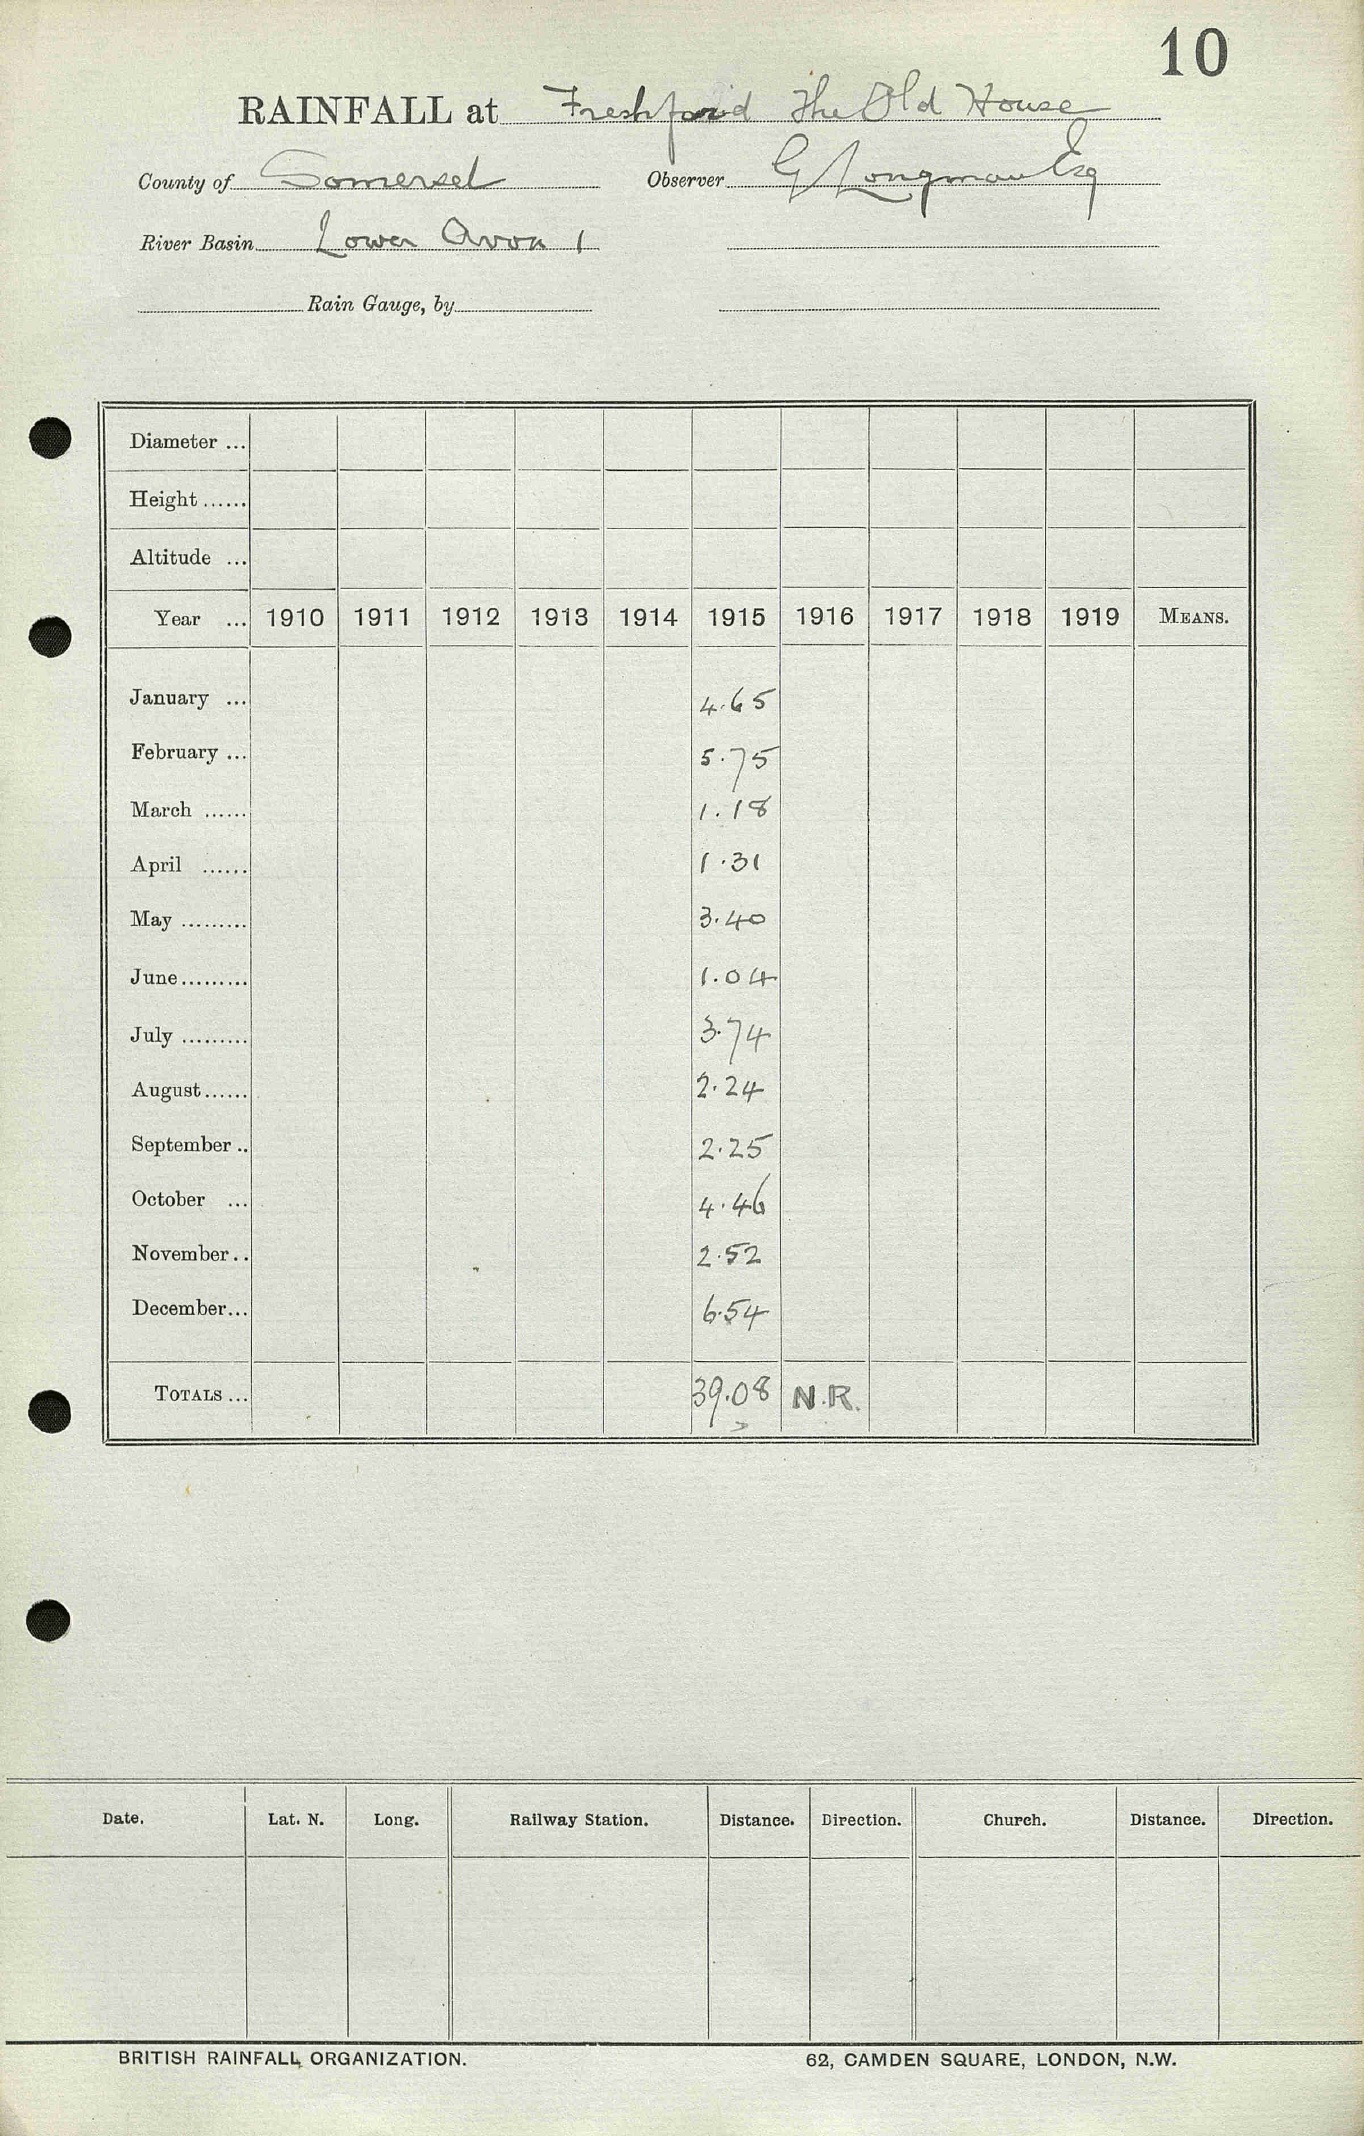 10
RAINFALL at Freshford The Old House
County of Somerset Observer G Longman Esq
River Basin Lower Avon 1
Rain Gauge, by
Diameter ...
Height ......
Altitude ...
Year ... 1910 1911 1912 1913 1914 1915 1916 1917 1918 1919 MEANS.
January ... 4.65
February ... 5.75
March ...... 1.18
April ...... 1.31
May ......... 3.40
June ......... 1.04
July ......... 3.74
August ...... 2.24
September .. 2.25
October ... 4.46
November .. 2.52
December ... 6.54
TOTALS ... 39.08 N.R.
Date. Lat. N. Long. Railway Station. Distance. Direction. Church. Distance. Direction.
BRITISH RAINFALL ORGANIZATION. 62, CAMDEN SQUARE, LONDON, N.W.